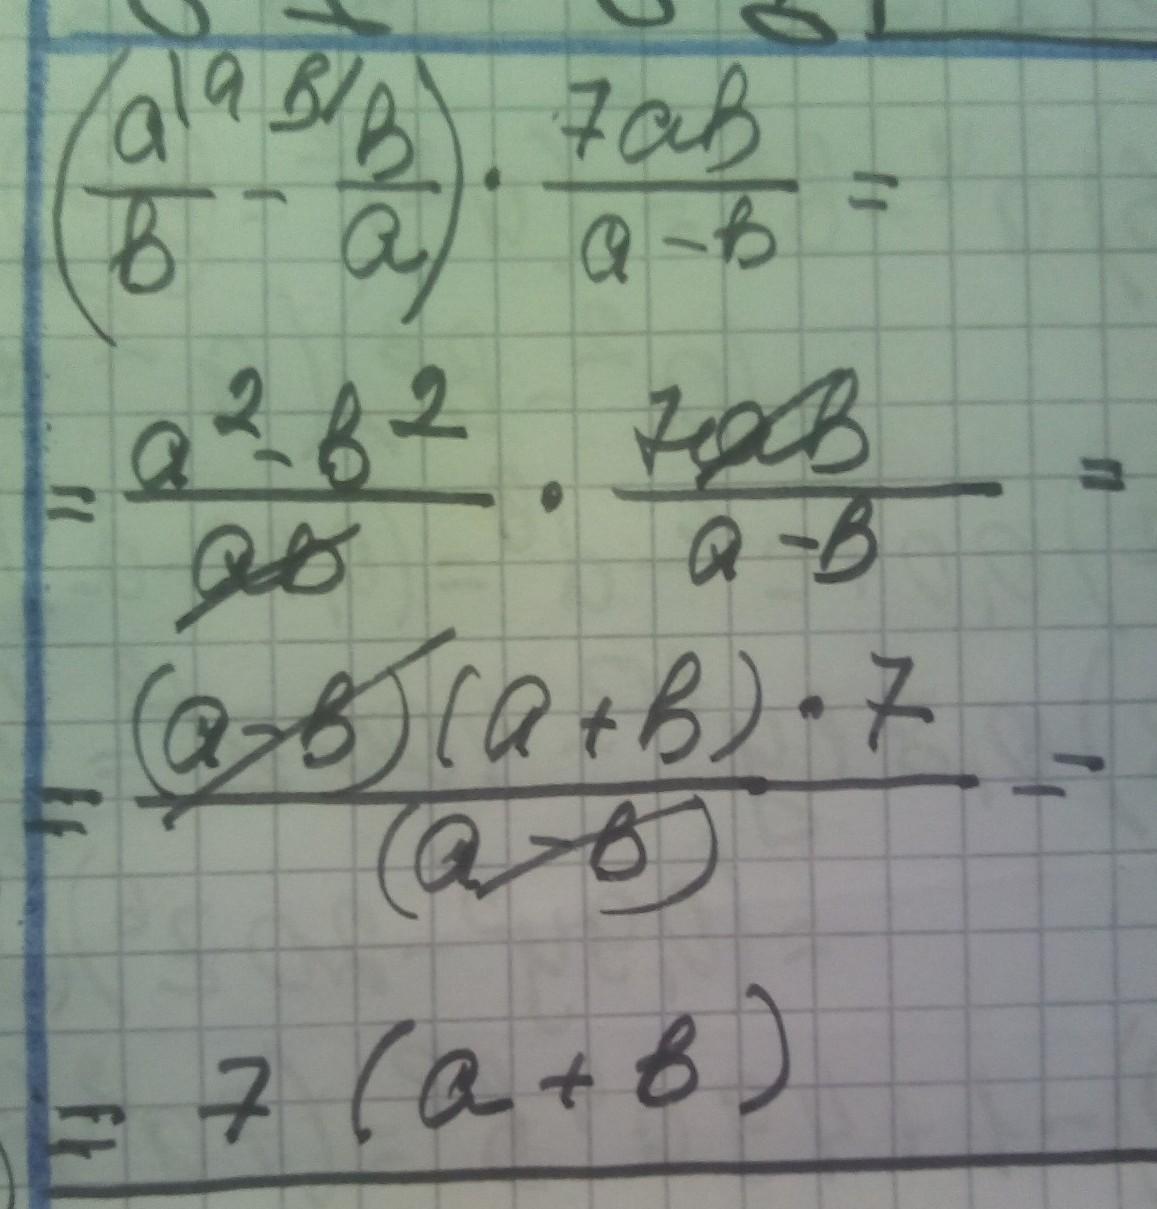 (a/b |a - b| b/a) · 7ab/(a-b) =
= (a²-b²)/(ab) · 7ab/(a-b) =
= (a-b)(a+b)·7/(a-b) =
= 7(a+b)